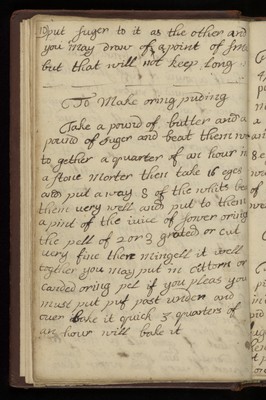 put suger to it as the other and
you may draw of a point of
but that will not keep long
To Make oring puding
Take a pound of butter and a
pound of suger and beat them
to gether a quarter of an hour in
a stone morter then take 16 eges
and put away 8 of the whits beat
them uery well and put to them
a pint of the iuice of sower oring
the pell of 2 or 3 grated or cut
uery fine then mingell it well
together you may put in Cittorn or
Canded oring pel if you pleas you
must put puf past under and
ouer bake it quick 3 quarters of
an hour will bake it